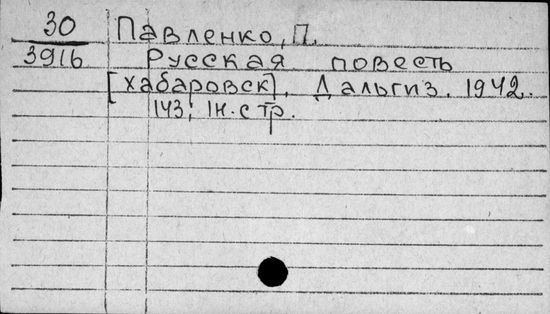 30 Павленко, П.
3916 Русская повесть
[Хабаровск], Дальгиз. 1942.
143; 1н.с тр.